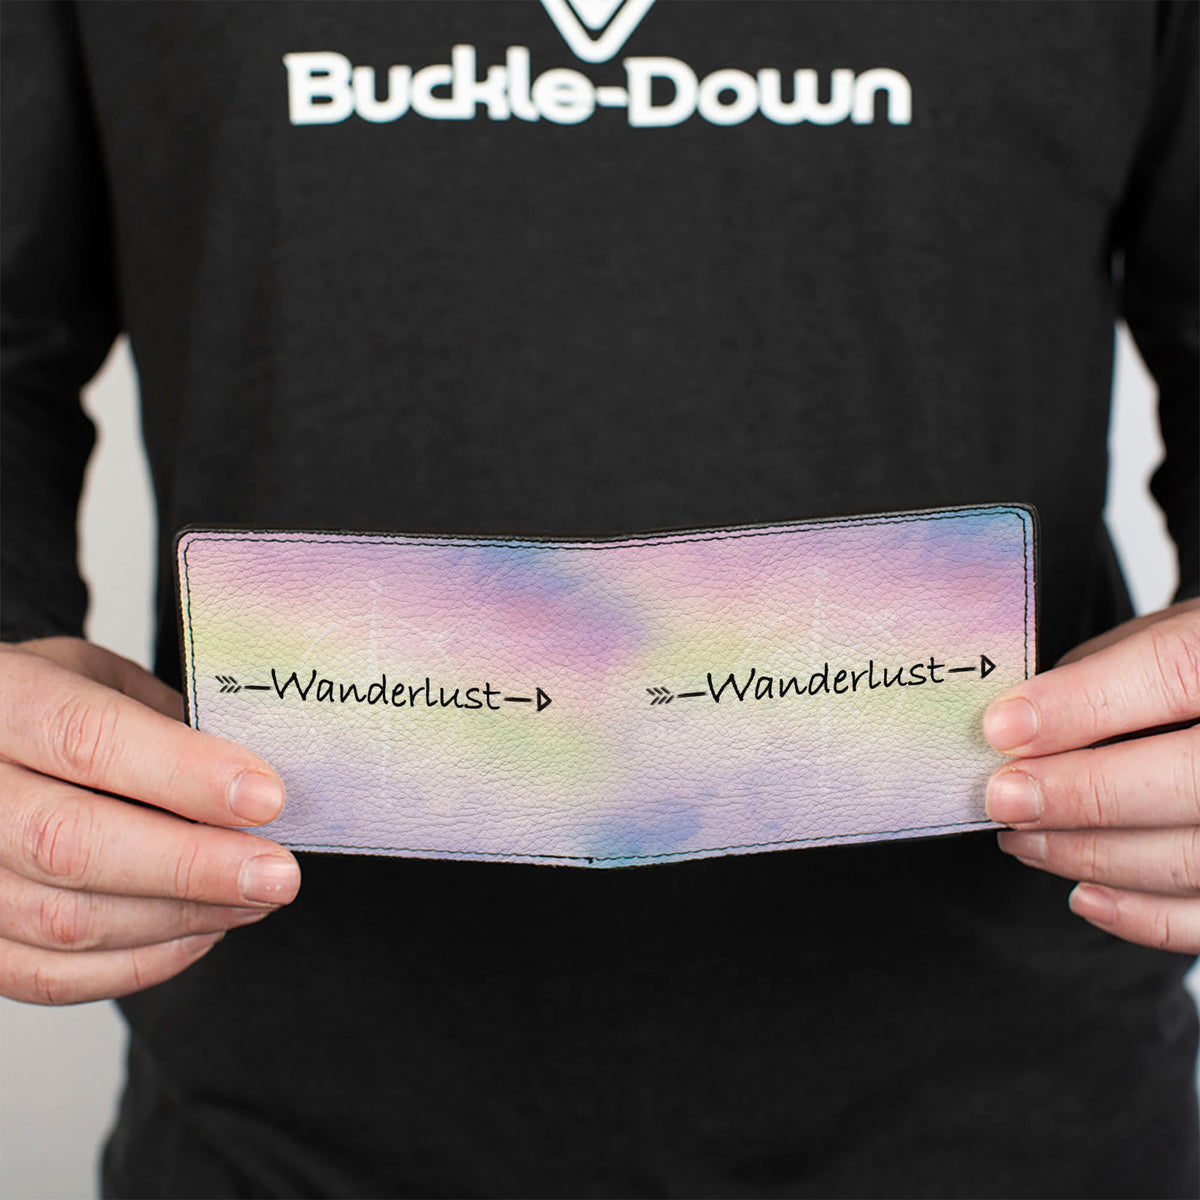 Buckle-Down
Wanderlust
Wanderlust